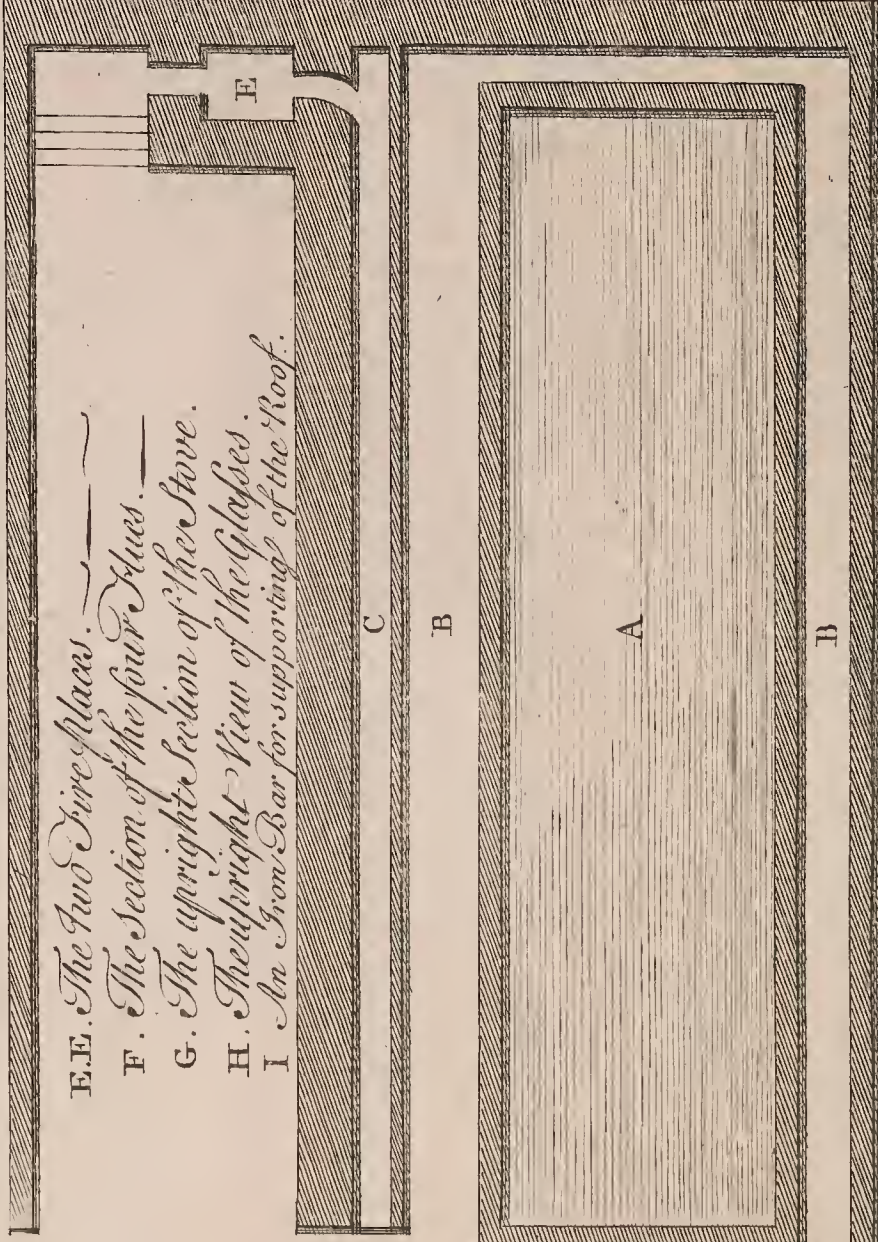 E.E. The two Fireplaces.
F. The Section of the four Flues.
G. The upright Section of the Stove.
H. The upright View of the Glaſses.
I An Iron Bar for supporting of the Roof.
E
C
B
A
B